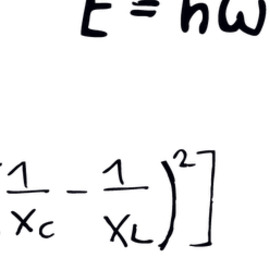 E = hω
1/X_C - 1/X_L)²]